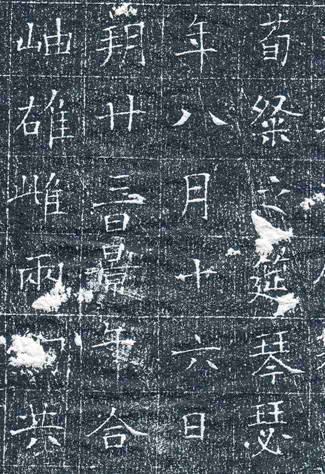 荀粲之筵琴瑟
年八月十六日
朔廿三日景午合
岫雄雌兩共